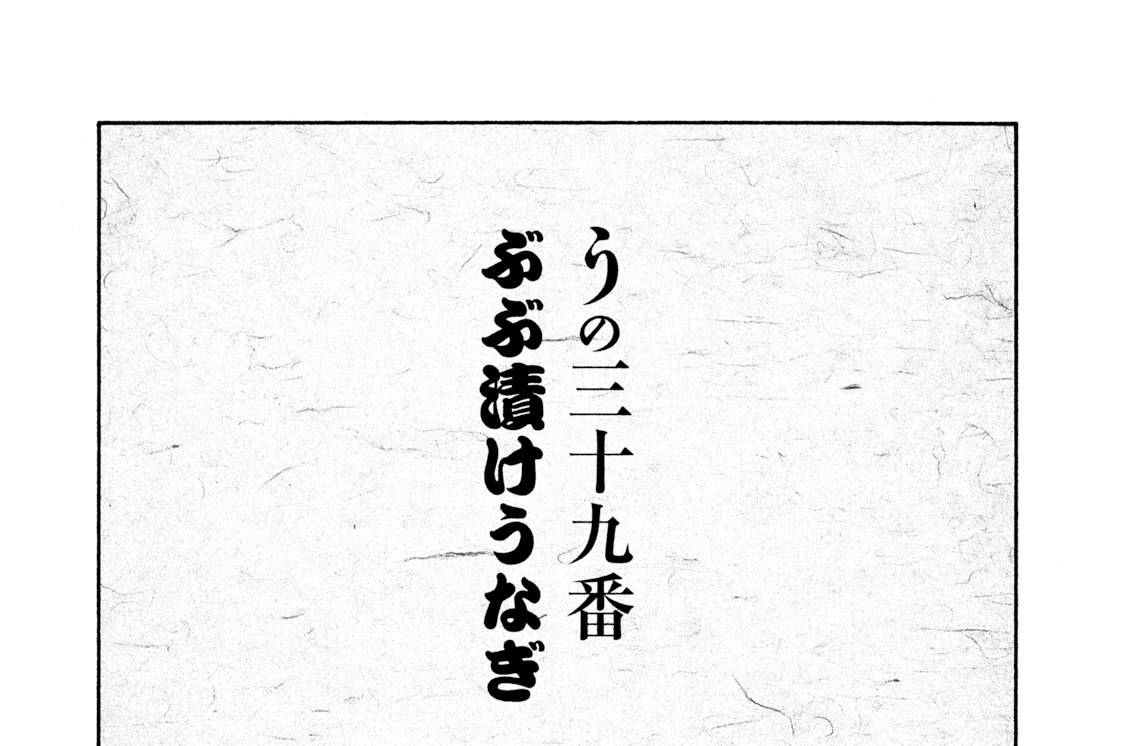 うの三十九番
ぶぶ漬けうなぎ